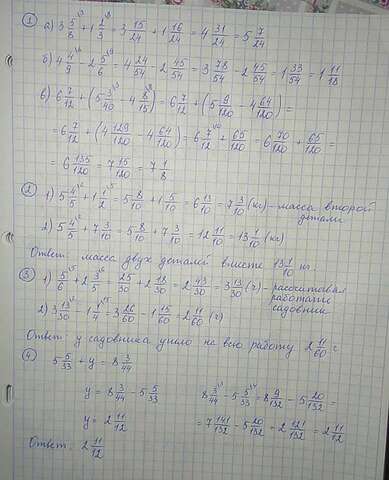 ① а) 3 5/8 + 1 2/3 = 3 15/24 + 1 16/24 = 4 31/24 = 5 7/24
б) 4 4/9 - 2 5/6 = 4 24/54 - 2 45/54 = 3 78/54 - 2 45/54 = 1 33/54 = 1 11/18
в) 6 7/12 + (5 3/40 - 4 8/15) = 6 7/12 + (5 9/120 - 4 64/120) =
= 6 7/12 + (4 129/120 - 4 64/120) = 6 7/12 + 65/120 = 6 70/120 + 65/120 =
= 6 135/120 = 7 15/120 = 7 1/8
② 1) 5 4/5 + 1 1/2 = 5 8/10 + 1 5/10 = 6 13/10 = 7 3/10 (кг) - масса второй
детали
2) 5 4/5 + 7 3/10 = 5 8/10 + 7 3/10 = 12 11/10 = 13 1/10 (кг)
Ответ: масса двух деталей вместе 13 1/10 кг.
③ 1) 5/6 + 2 3/5 = 25/30 + 2 18/30 = 2 43/30 = 3 13/30 (ч) -
работали
садовник
2) 3 13/30 - 1 1/4 = 3 26/60 - 1 15/60 = 2 11/60 (ч)
Ответ: у садовника ушло на всю работу 2 11/60 ч
④ 5 5/33 + y = 8 3/44
y = 8 3/44 - 5 5/33
8 3/44 - 5 5/33 = 8 9/132 - 5 20/132 =
y = 2 11/12
= 7 141/132 - 5 20/132 = 2 121/132 = 2 11/12
Ответ: 2 11/12